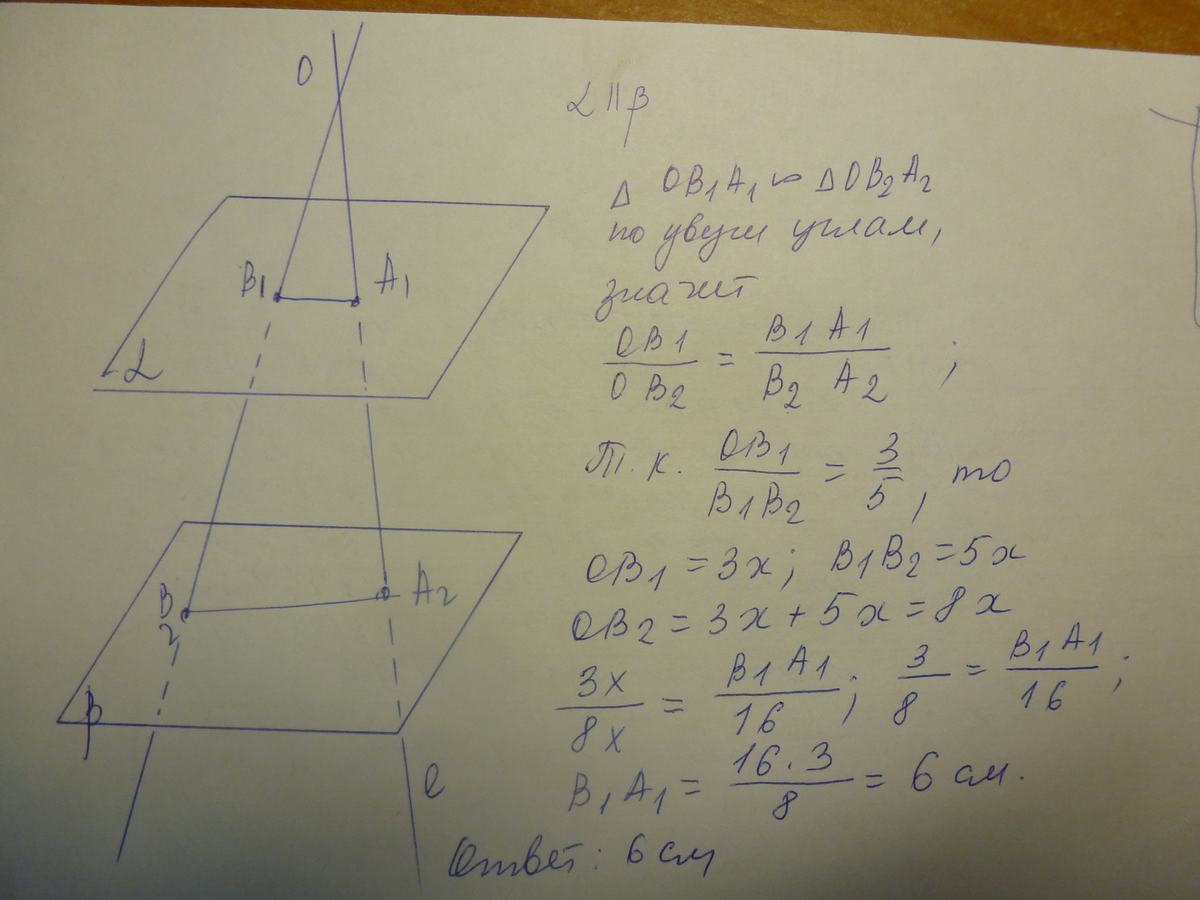 O
B₁ A₁
α
B₂ A₂
β
l
α || β
Δ OB₁A₁ ∽ Δ OB₂A₂
по двум углам,
значит
OB₁/OB₂ = B₁A₁/B₂A₂ ;
Т.к. OB₁/B₁B₂ = 3/5, то
OB₁ = 3x; B₁B₂ = 5x
OB₂ = 3x + 5x = 8x
3x/8x = B₁A₁/16; 3/8 = B₁A₁/16;
B₁A₁ = 16·3/8 = 6 см.
Ответ: 6 см